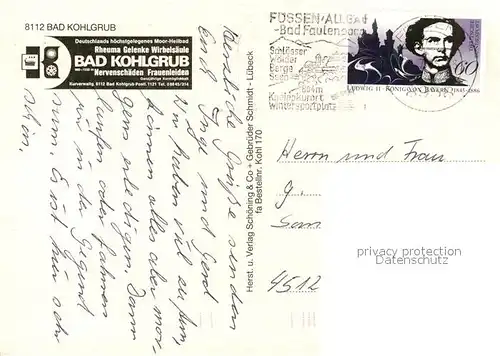 8112 BAD KOHLGRUB
Deutschlands höchstgelegenes Moor-Heilbad
Rheuma Gelenke Wirbelsäule
BAD KOHLGRUB
Nervenschäden Frauenleiden
Ganzjährige Kurmöglichkeit
Kurverwaltg 8112 Bad Kohlgrub-Postf. 1121 Tel. 08845/314
Herzliche Grüße senden
Euch Inge und Gerd
Wir haben viel zu tun,
können alles aber mor-
gen erledigen. Dann
laufen oder fahren
wir in der Gegend
rum. Es ist hier sehr
schön.
Herst. u. Verlag Schöning & Co · Gebrüder Schmidt - Lübeck
fa Bestellnr. Kohl 170
FÜSSEN/ALLGÄU
-Bad Faulenbach
Schlösser
Wälder
Berge
Seen
Kneippkurort
Wintersportplatz
LUDWIG II · KÖNIG VON BAYERN 1845-1886
60
Herrn und Frau
4512
privacy protection
Datenschutz